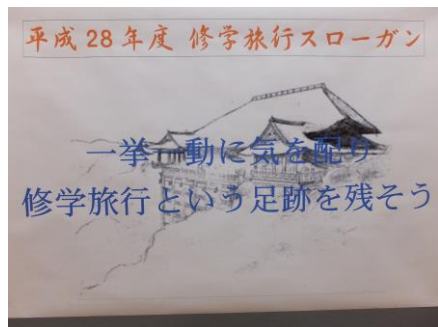 平成28年度 修学旅行スローガン
一挙一動に気を配り
修学旅行という足跡を残そう